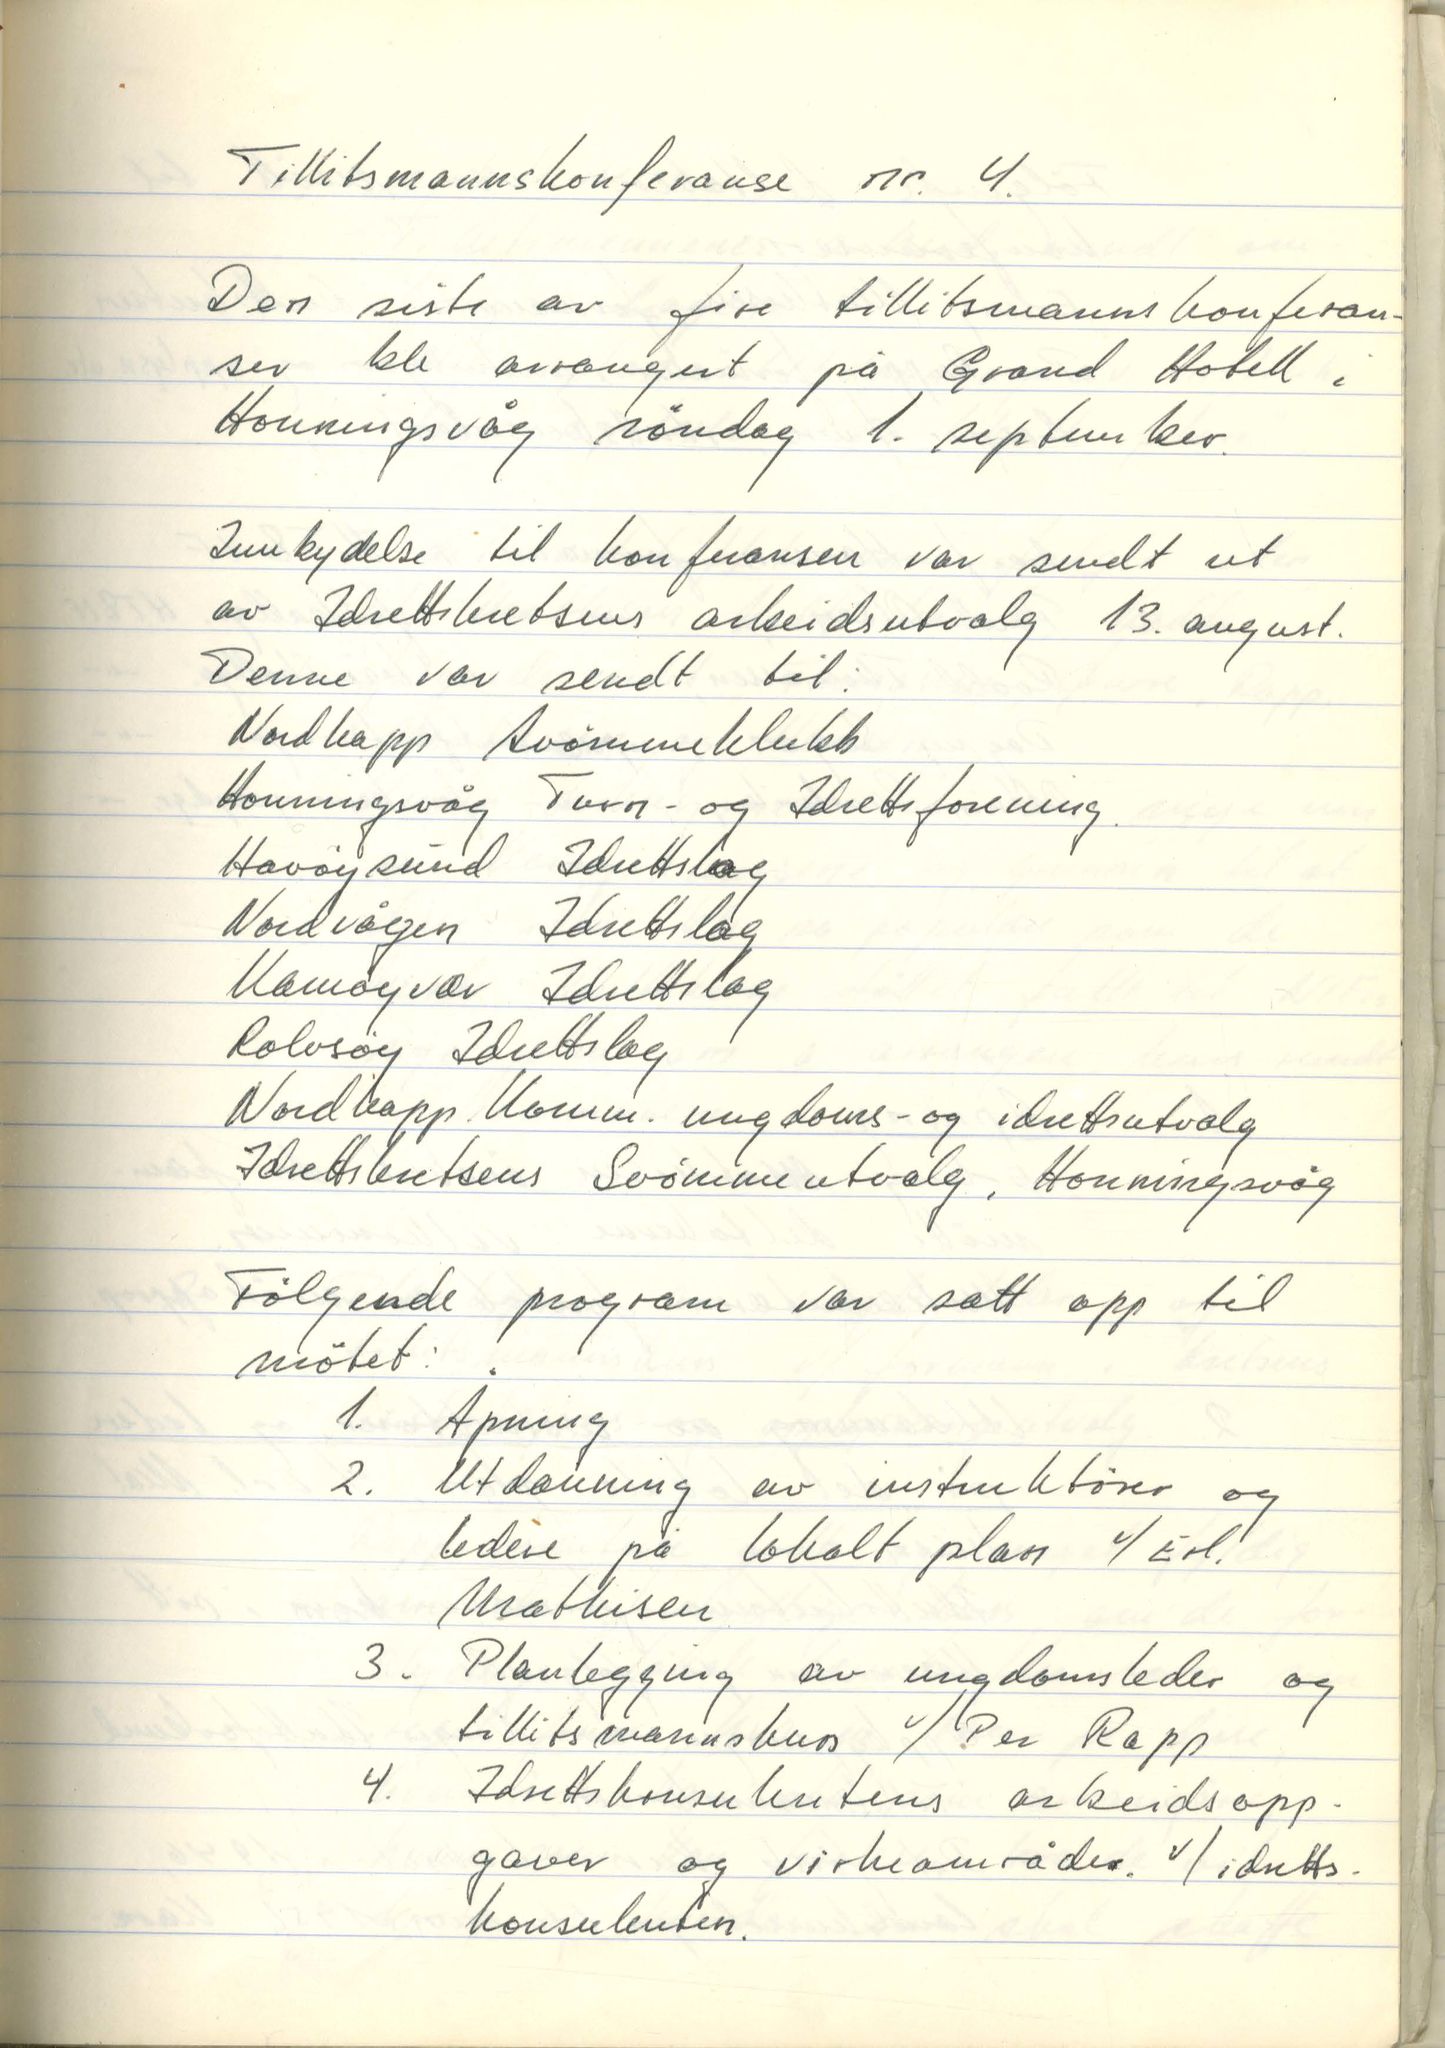 Tillitsmannskonferanse nr. 4.
Den siste av fire tillitsmannskonferan-
ser ble arrangert på Grand Hotell i
Honningsvåg söndag 1. september.
Innbydelse til konferansen var sendt ut
av Idrettskretsens arbeidsutvalg 13. august.
Denne var sendt til:
Nordkapp Svömmeklubb
Honningsvåg Turn- og Idrettsforening.
Havöysund Idrettslag
Nordvågen Idrettslag
Kamöyvær Idrettslag
Rolvsöy Idrettslag
Nordkapp Komm. ungdoms- og idrettsutvalg
Idrettskretsens Svömmeutvalg, Honningsvåg
Fölgende program var satt opp til
mötet:
1. Åpning
2. Utdanning av instruktörer og
ledere på lokalt plan v/ Erl.
Mathisen
3. Planlegging av ungdomsleder og
tillitsmannskurs v/ Per Rapp
4. Idrettskonsulentens arbeidsopp-
gaver og virkeområder. v/ idretts-
konsulenten.